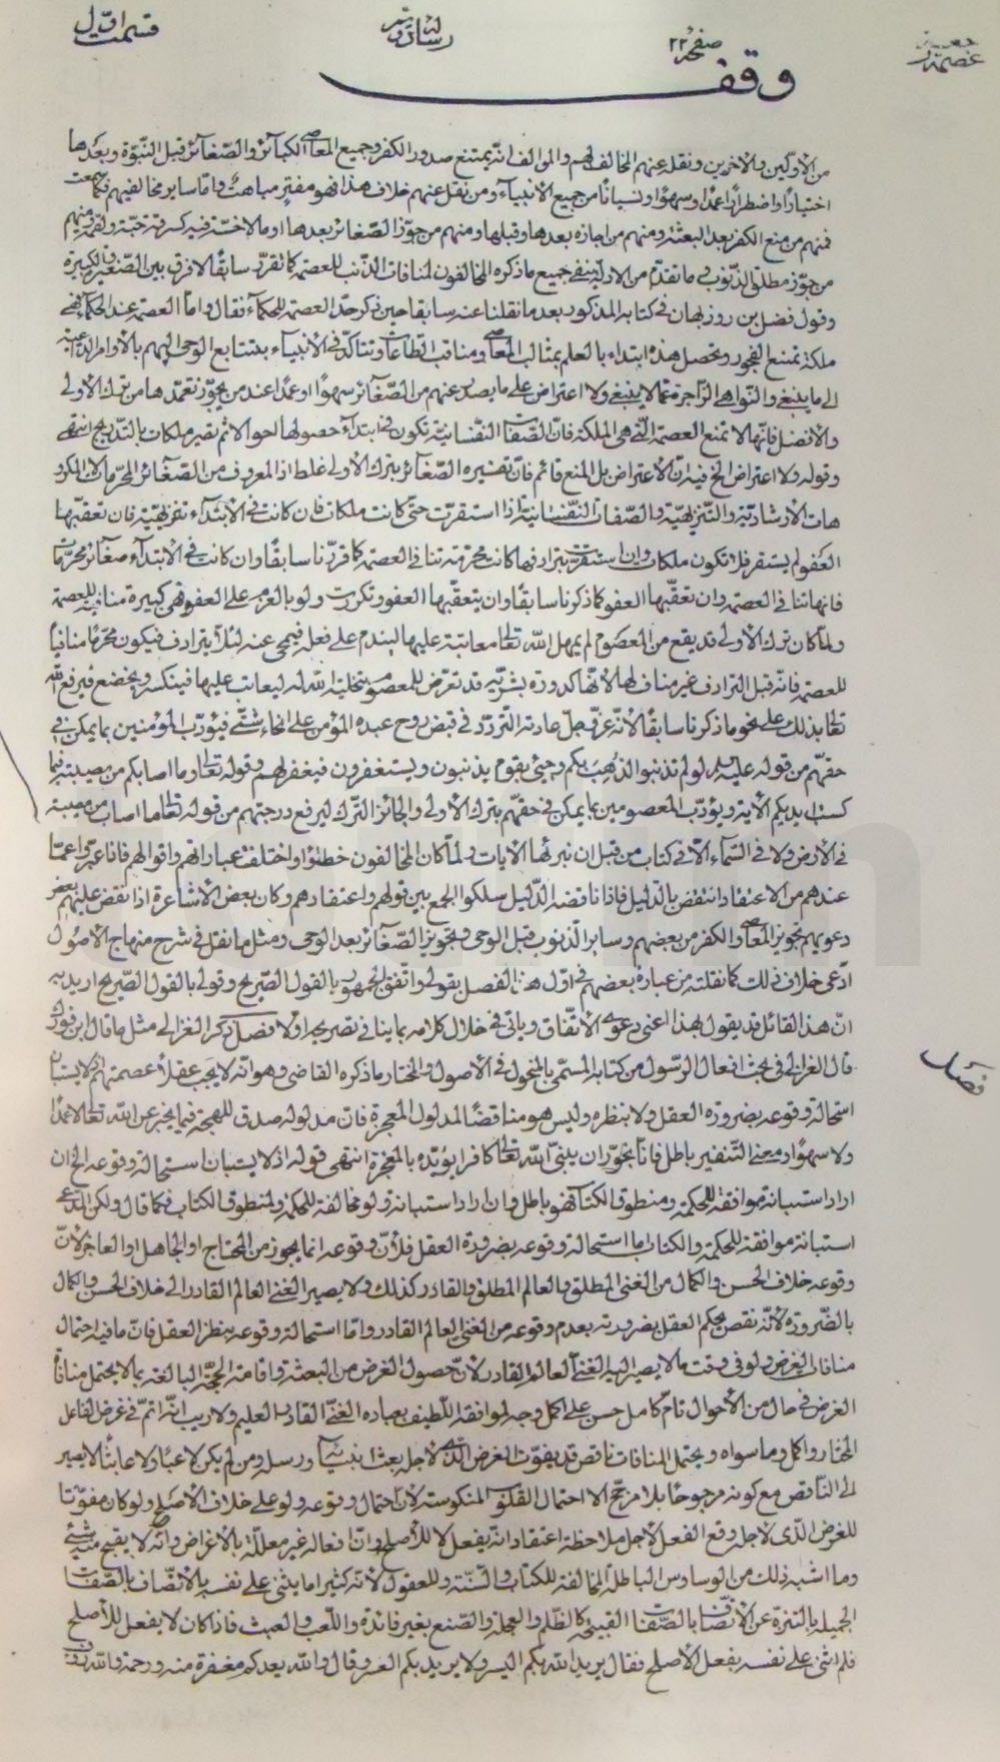 قسمت اول
صفحه ٢٢
وقف
من الأولين والآخرين ونقل عنهم المخالف لهم والموالف انه يمتنع صدور الكفر وجميع المعاصي الكبائر والصغائر قبل النبوة وبعدها
اختيارا واضطرارا عمدا وسهوا ونسيانا من جميع الانبياء ومن نقل عنهم خلاف هذا فهو مفتر مباهت واما ساير مخالفيهم
فمنهم من منع الكفر بعد البعثة ومنهم من اجازه بعدها وقبلها ومنهم من جوز الصغائر بعدها اوما لا خسة فيه كسرقة حبة ولقمة ومنهم
من جوز مطلق الذنوب وما تقدم من الادلة ينفي جميع ما ذكره المخالفون لمنافات الذنب للعصمة كما تقرر سابقا لا فرق بين الصغيرة والكبيرة
وقول فضل بن روزبهان في كتابه المذكور بعد ما نقلنا عنه سابقا حين ذكر حد العصمة للحكماء فقال واما العصمة عند الحكماء فهي
ملكة تمنع الفجور وتحصل هذه ابتداء بالعلم بمثالب المعاصي ومناقب الطاعات وتتأكد في الأنبياء بتتابع الوحي اليهم بالأوامر الداعية
الى ما ينبغي والنواهي الزاجرة عما لا ينبغي ولا اعتراض على ما يصدر عنهم من الصغائر سهوا او عمدا عند من يجوز تعمدها من ترك الأولى
والأفضل فانها لا تمنع العصمة التي هي الملكة فان الصفات النفسانية تكون في ابتداء حصولها احوالا ثم تصير ملكات بالتدريج انتهى
وقوله ولا اعتراض الخ فيه ان الاعتراض بل المنع قائم فان تفسيره الصغائر بترك الأولى غلط اذ المعروف من الصغائر المحرمات لا المكرو
هات الأرشادية والتنزيهية والصفات النفسانية اذا استقرت حتى كانت ملكات فان كانت في الأبتداء تنزيهية فان تعقبها
العفو لم يستقر فلا تكون ملكات وان استقرت بترادفها كانت محرمة تنافي العصمة كما قررنا سابقا وان كانت في الابتداء صغائر محرمات
فانها تنافي العصمة وان تعقبها العفو كما ذكرنا سابقا وان لم يتعقبها العفو وتكررت ولو بالعزم على العفو فهي كبيرة منافية للعصمة
ولما كان ترك الأولى قد يقع من المعصوم لم يمهل الله تعالى معاتبته عليها ليندم على فعله فيمحى عنه لئلا يترادف فيكون محرما منافيا
للعصمة فانه قبل الترادف غير مناف لها لأنها كدورة بشرية قد تعرض للمعصوم بتخلية الله له ليعاتب عليها فينكسر ويخضع فيرفع الله
تعالى بذلك على نحو ما ذكرنا سابقا لأنه عز وجل عادته التردد في قبض روح عبده المؤمن على انحاء شتى فيؤدب المؤمنين بما يمكن في
حقهم من قوله عليه السلام لو لم تذنبوا لذهب بكم وجئ بقوم يذنبون ويستغفرون فيغفر لهم وقوله تعالى وما اصابكم من مصيبة فبما
كسبت ايديكم الآية ويؤدب المعصومين بما يمكن في حقهم بترك الأولى والجائز الترك ليرفع درجتهم من قوله تعالى ما اصاب من مصيبة
في الأرض ولا في السماء الا في كتاب من قبل ان نبرئها الآيات ولما كان المخالفون خطئوا واختلف عباراتهم واقوالهم فاذا عبروا عما
عندهم من الاعتقاد انتقض بالدليل فاذا ناقضه الدليل سلكوا الجمع بين قولهم واعتقادهم وكان بعض الأشاعرة اذا نقض عليهم بعض
دعويهم بتجويز المعاصي والكفر من بعضهم وساير الذنوب قبل الوحي وتجويز الصغائر بعد الوحي ومثل ما نقل في شرح منهاج الأصول
ادعى خلاف ذلك كما نقلته من عبارة بعضهم في اول هذا الفصل بقولي واتفق الجمهور بالقول الصريح وقولي بالقول الصريح اريد به
ان هذا القائل قد يقول بهذا اعني دعوى الأتفاق وياتي في خلال كلامه بما ينافي تصريحه اولا فصل ذكر الغزالي مثل ما قال ابن فورك
قال الغزالي في بحث افعال الرسول من كتابه المسمى بالمنخول في الأصول والمختار ما ذكره القاضي وهو انه لا يجب عقلا عصمتهم اذ لا يستبان
استحالة وقوعه بضرورة العقل ولا بنظره وليس هو مناقضا لمدلول المعجزة فان مدلوله صدق اللهجة فيما يخبر عن الله تعالى لا عمدا
ولا سهوا ومعنى التنفير باطل فانا نجوز ان ينبئ الله تعالى كافرا يؤيده بالمعجزة انتهى قوله اذ لا يستبان استحالة وقوعه الخ ان
اراد استبانة موافقة للحكمة ومنطوق الكتاب فهو باطل وان اراد استبانة ولو مخالفة للحكمة ولمنطوق الكتاب فكما قال ولكن المدعى
استبانة موافقة للحكمة والكتاب اما استحالة وقوعه بضرورة العقل فلأن وقوعه انما يجوز من المحتاج او الجاهل او العاجز لأن
وقوعه خلاف الحسن والكمال من الغني المطلق والعالم المطلق والقادر كذلك ولا يصير الغني العالم القادر الى خلاف الحسن والكمال
بالضرورة لأنه نقص يحكم العقل بضرورته بعدم وقوعه من الغني العالم القادر واما استحالة وقوعه بنظر العقل فان ما فيه احتمال
منافات الغرض ولو في وقت ما لا يصير اليه الغني العالم القادر لأن حصول الغرض من البعثة واقامة الحجة البالغة بما لا يحتمل منافاة
الغرض في حال من الأحوال تام كامل حسن على اكمل وجه لموافقة اللطيف بعباده الغني القادر العليم ولا ريب انه اتم في غرض الفاعل
المختار واكمل وما سواه ويحتمل المنافات ناقص قد يفوت الغرض الذي لأجله بعث انبيائه ورسله ومن لم يكن لاعبا ولا عابثا لا يصير
الى الناقص مع كونه مرجوحا بلا مرجح الا احتمال القلوب المنكوسة لأن احتمال وقوعه ولو على خلاف الأصلح ولو كان مفوتا
للغرض الذي لاجله وقع الفعل لأجل ملاحظة اعتقاد انه يفعل لا للأصلح وان افعاله غير معللة بالأغراض وانه لا يقبح منه شئ
وما اشبه ذلك من الوساوس الباطلة المخالفة للكتاب والسنة وللعقول لأنه كثيرا ما يثني على نفسه بالأتصاف بالصفات
الجميلة بالتنزه عن الأتصاف بالصفات القبيحة كالظلم والعجلة والصنع بغير فائدة واللعب والعبث فاذا كان لا يفعل للأصلح
فلم اثنى على نفسه بفعل الأصلح فقال يريد الله بكم اليسر ولا يريد بكم العسر وقال والله يعدكم مغفرة منه ورحمة والله
فصل